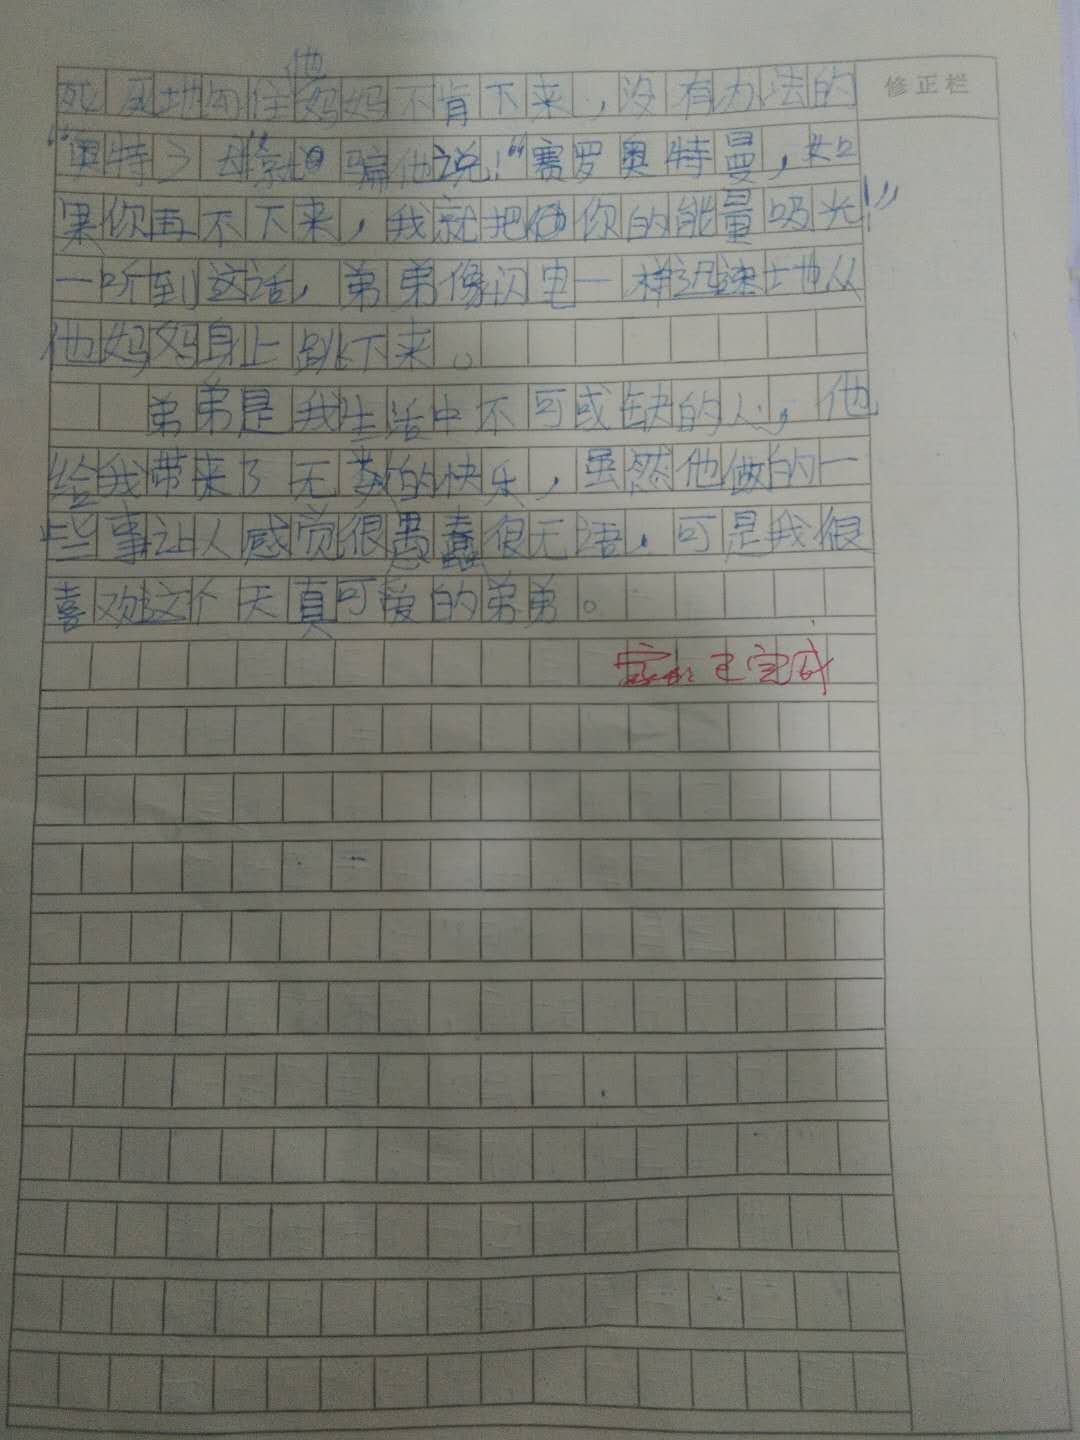 修正栏
死死地勾住他妈妈不肯下来，没有办法的
“奥特之母”就骗他说：“赛罗奥特曼，如
果你再不下来，我就把你的能量吸光！”
一听到这话，弟弟像闪电一样迅速地从
他妈妈身上跳下来。
弟弟是我生活中不可或缺的人，他
给我带来了无数的快乐，虽然他做的一
些事让人感觉很愚蠢很无语，可是我很
喜欢这个天真可爱的弟弟。
已完成